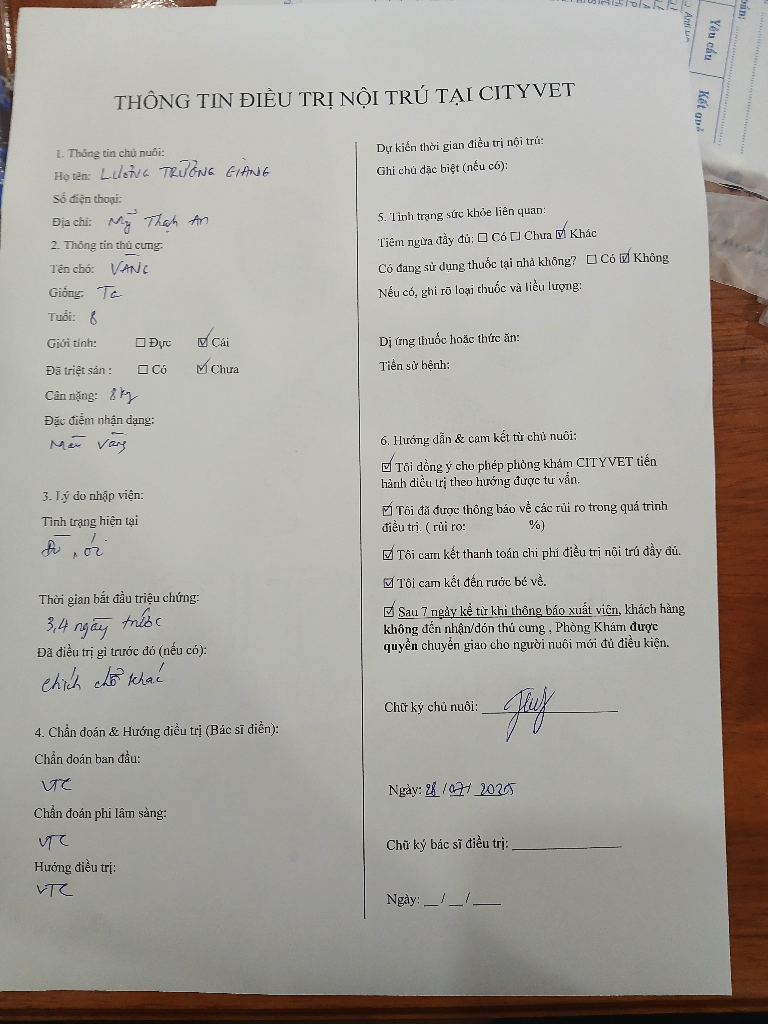 THÔNG TIN ĐIỀU TRỊ NỘI TRÚ TẠI CITYVET
1. Thông tin chủ nuôi:
Họ tên: LƯƠNG TRƯỜNG GIANG
Số điện thoại:
Địa chỉ: Mỹ Thạnh An
2. Thông tin thú cưng:
Tên chó: VÀNG
Giống: Ta
Tuổi: 8
Giới tính: ☐ Đực ☑ Cái
Đã triệt sản : ☐ Có ☑ Chưa
Cân nặng: 8kg
Đặc điểm nhận dạng:
Màu vàng
3. Lý do nhập viện:
Tình trạng hiện tại
, ói
Thời gian bắt đầu triệu chứng:
3,4 ngày trước
Đã điều trị gì trước đó (nếu có):
chích chỗ khác
4. Chẩn đoán & Hướng điều trị (Bác sĩ điền):
Chẩn đoán ban đầu:
VTC
Chẩn đoán phi lâm sàng:
VTC
Hướng điều trị:
VTC
Dự kiến thời gian điều trị nội trú:
Ghi chú đặc biệt (nếu có):
5. Tình trạng sức khỏe liên quan:
Tiêm ngừa đầy đủ: ☐ Có ☐ Chưa ☑ Khác
Có đang sử dụng thuốc tại nhà không? ☐ Có ☑ Không
Nếu có, ghi rõ loại thuốc và liều lượng:
Dị ứng thuốc hoặc thức ăn:
Tiền sử bệnh:
6. Hướng dẫn & cam kết từ chủ nuôi:
☑ Tôi đồng ý cho phép phòng khám CITYVET tiến
hành điều trị theo hướng được tư vấn.
☑ Tôi đã được thông báo về các rủi ro trong quá trình
điều trị. ( rủi ro: %)
☑ Tôi cam kết thanh toán chi phí điều trị nội trú đầy đủ.
☑ Tôi cam kết đến rước bé về.
☑ Sau 7 ngày kể từ khi thông báo xuất viện, khách hàng
không đến nhận/đón thú cưng , Phòng Khám được
quyền chuyển giao cho người nuôi mới đủ điều kiện.
Chữ ký chủ nuôi:
Ngày: 28 / 07 / 2025
Chữ ký bác sĩ điều trị: ____________
Ngày: __ / __ / ____
Yêu cầu
Kết quả